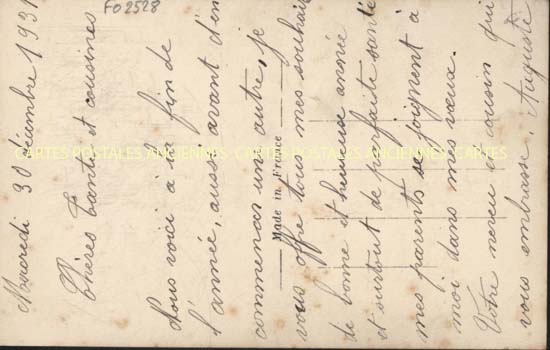 FO2528
Mercredi 30 décembre 1931
Chères Tantes et cousines
Nous voici à la fin de
l'année, aussi avant d'en
commencer une autre, je
vous offre tous mes souhaits
de bonne et heureuse année
et surtout de parfaite santé
mes parents se joignent à
moi dans mes vœux.
Votre neveu et cousin qui
vous embrasse. Auguste
Made in France
CARTES POSTALES ANCIENNES .COM
CARTES POSTALES ANCIENNES .COM
CARTES POSTALES ANCIENNES .COM